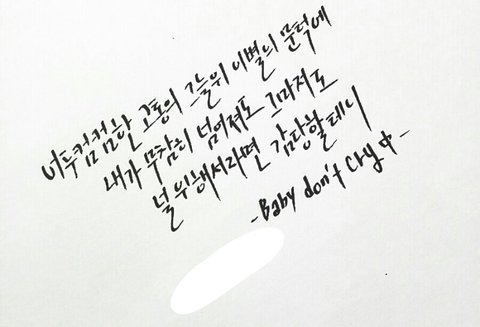 어두컴컴한 고통의 그늘위 이별의 문턱에
내가 무참히 넘어져도 그마저도
널 위해서라면 감당할테니
-Baby don't cry 中-